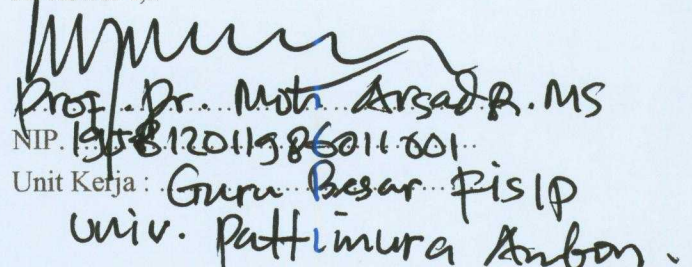 Prof. Dr. Moh Arsad R. MS
NIP. 195812011986011001
Unit Kerja : Guru Besar Fisip
Univ. Pattimura Ambon.